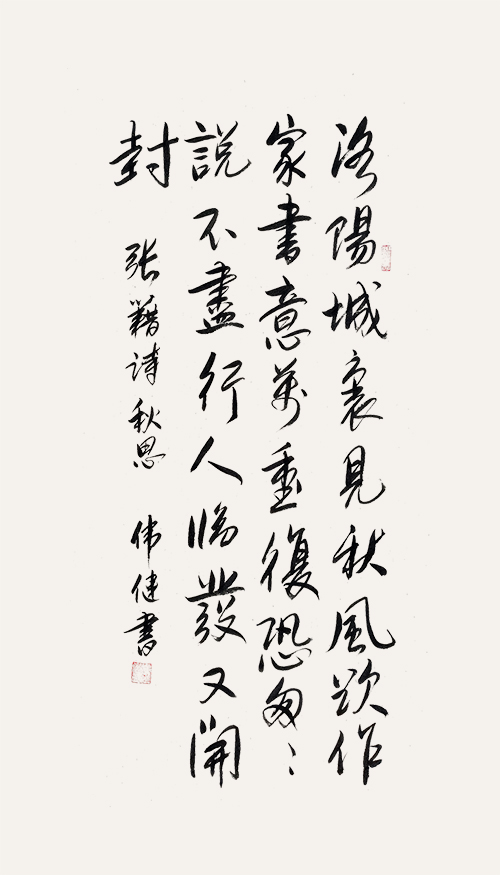 洛陽城裏見秋風欲作
家書意萬重復恐匆〻
說不盡行人臨發又開
封
张籍詩秋思 伟健書